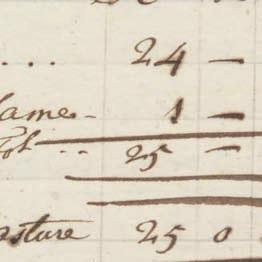 .... 24 —
ame- 1 —
-- 25 —
sture 25 0